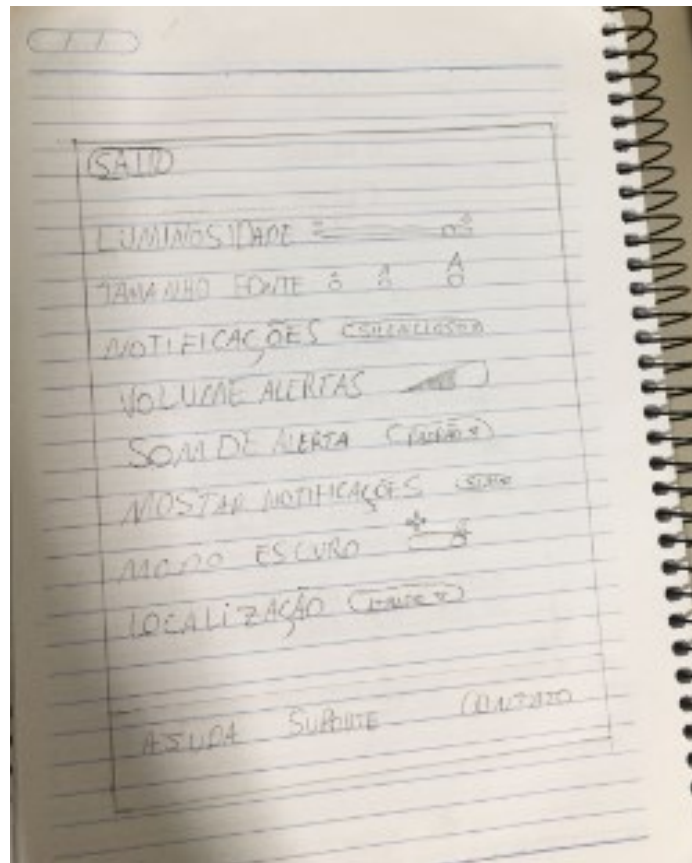 LUMINOSIDADE
TAMANHO FONTE A A A
NOTIFICAÇÕES
VOLUME ALERTAS
SOM DE ALERTA
MOSTAR NOTIFICAÇÕES
MODO ESCURO
LOCALIZAÇÃO
AJUDA SUPORTE CONTATO